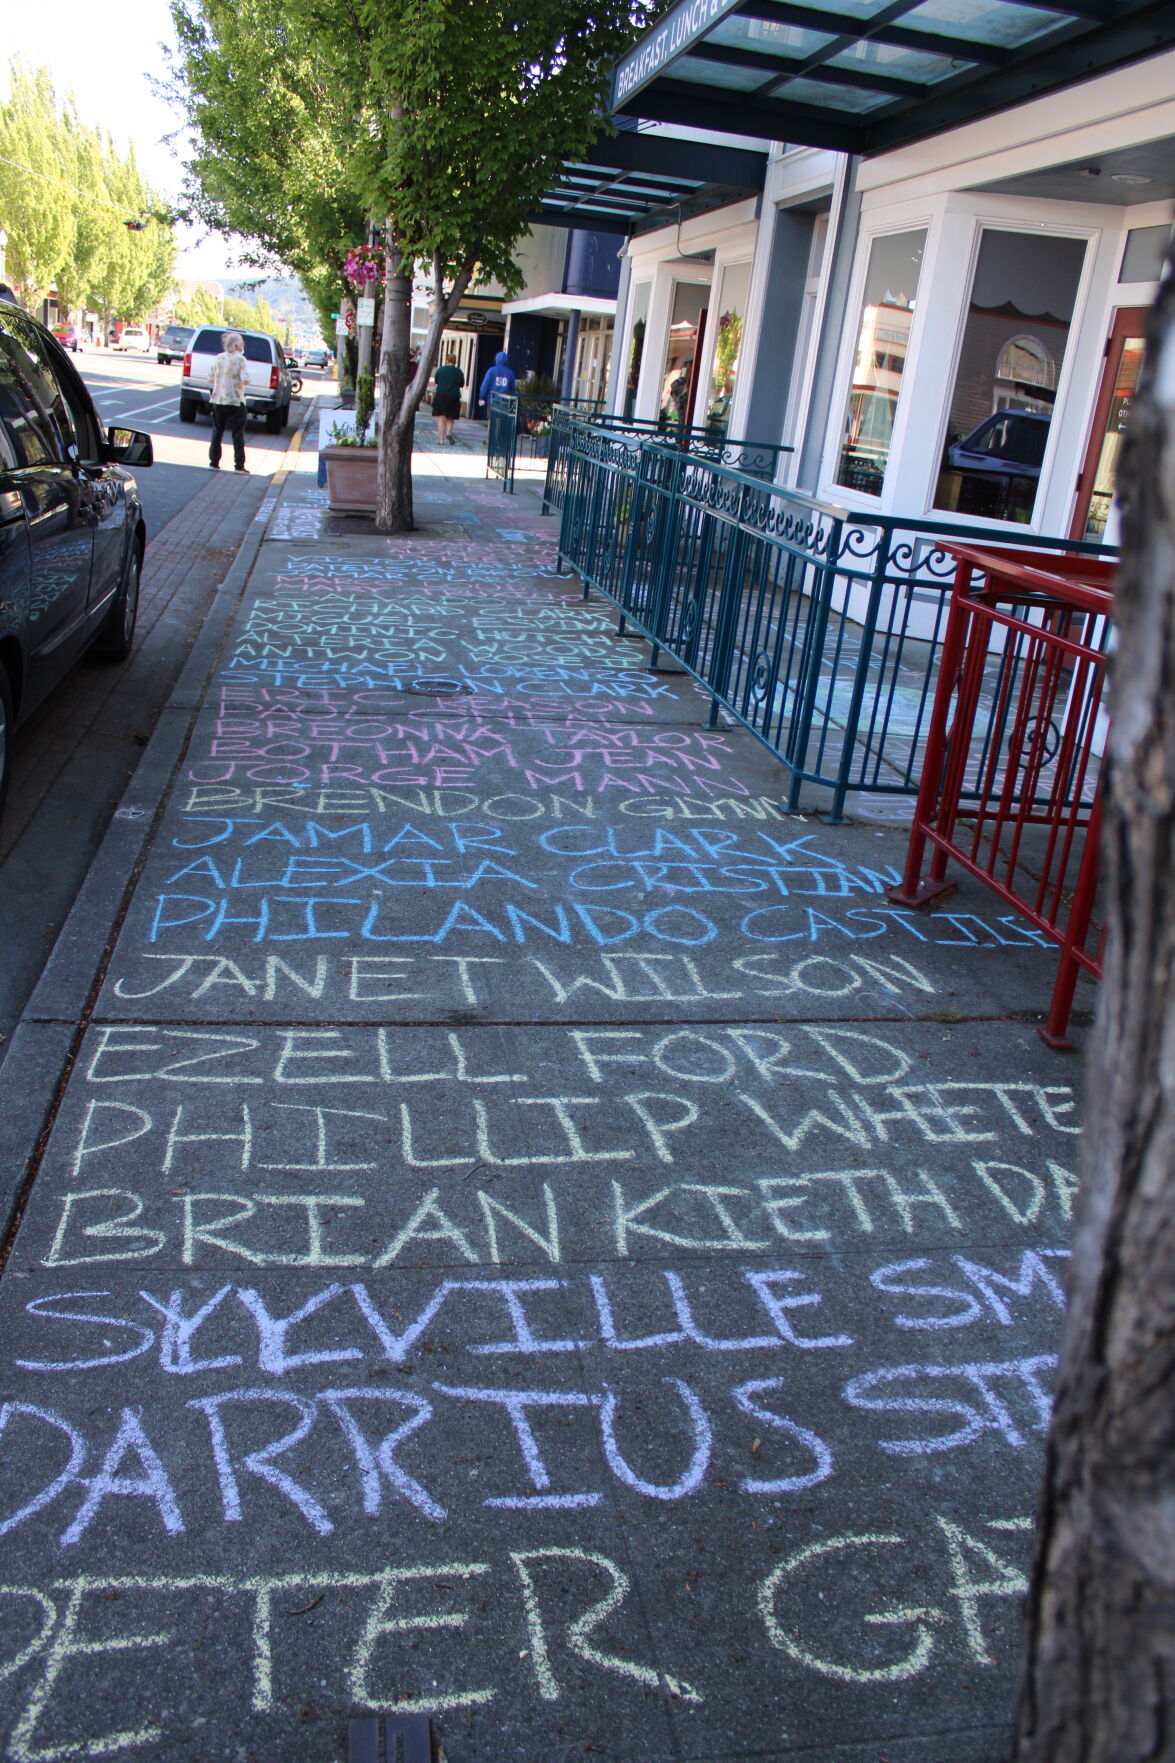 BREAKFAST, LUNCH &
50
RICHARD CLARK
DOMINIC HUTCH
ALTERIA WOODS
ANTWON ROSE II
MICHAEL LORENZO
STEPHON CLARK
ERIC REASON
PAUL O'NEAL
BREONNA TAYLOR
BOTHAM JEAN
JORGE MANN
BRENDON GLYNN
JAMAR CLARK
ALEXIA CRISTIAN
PHILANDO CASTILE
JANET WILSON
EZELL FORD
PHILLIP WHITE
BRIAN KIETH DA
SYLVILLE SM
DARRIUS ST
PETER GA